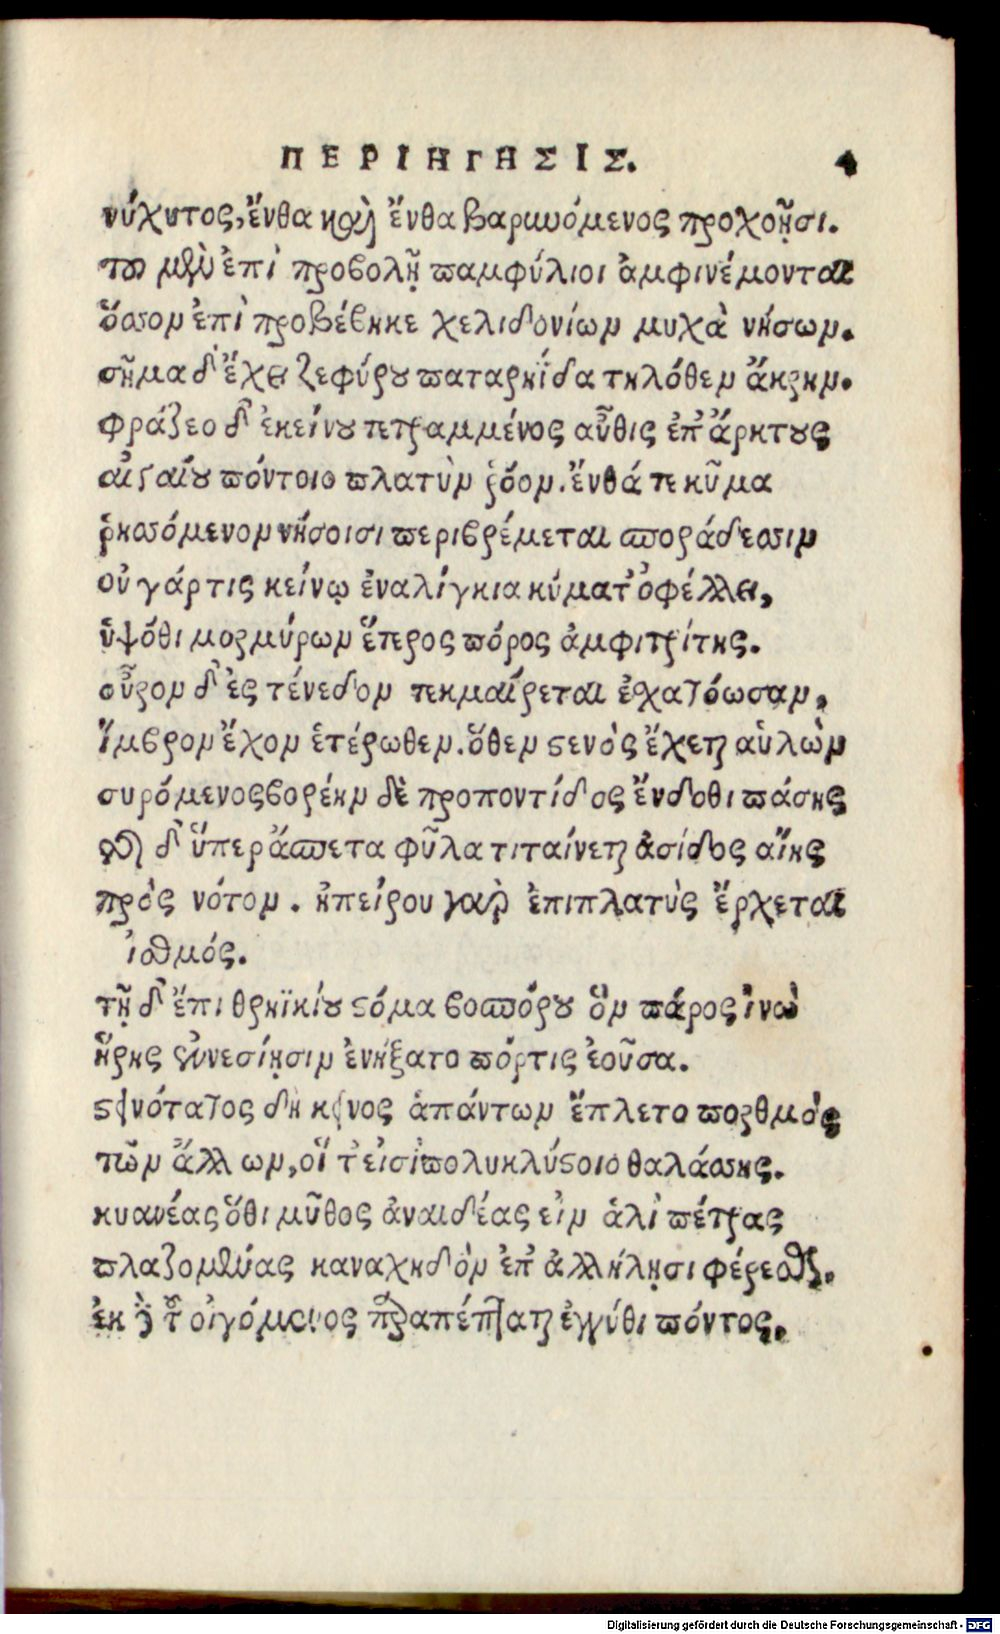 ΠΕΡΙΗΓΗΣΙΣ. 4
νύχυτος, ἔνθα καὶ ἔνθα βαρυνόμενος προχοῇσι.
τῶ μὲν ἐπὶ προβολῇ παμφύλιοι ἀμφινέμονται
ὅσσον ἐπὶ προβέβηκε χελιδονίων μυχὰ νήσων.
σῆμα δ' ἔχει ζεφύρου παταρηΐδα τηλόθεν ἄκρην.
φράζεο δ' ἐκείνου τετραμμένος αὖθις ἐπ' ἄρκτους
αἰγαίου πόντοιο πλατὺν ῥόον. ἔνθά τε κῦμα
ῥησσόμενον νήσοισι περιβρέμεται σποράδεσσιν
οὐ γάρ τις κείνῳ ἐναλίγκια κύματ' ὀφέλλει,
ὑψόθι μορμύρων ἕτερος πόρος ἀμφιτρίτης.
οὖρον δ' ἐς τένεδον τεκμαίρεται ἐσχατόωσαν,
ἴμβρον ἔχον ἑτέρωθεν. ὅθεν στενὸς ἔχεται αὐλὼν
συρόμενος βορέην δὲ προποντίδος ἔνδοθι πάσης
τῆς δ' ὕπερ ἄσπετα φῦλα τιταίνεται ἀσίδος αἴης
πρὸς νότον. ἠπείρου γαρ ἐπιπλατὺς ἔρχεται
ἰσθμός.
τῇ δ' ἔπι θρηϊκίου στόμα βοσπόρου ὃν πάρος ἰνὼ
ἥρης ἐννεσίῃσιν ἐνήξατο πόρτις ἐοῦσα.
στεινότατος δὴ κεῖνος ἁπάντων ἔπλετο πορθμὸς
τῶν ἄλλων, οἵ τ' εἰσὶ πολυκλύστοιο θαλάσσης.
κυανέας ὅθι μῦθος ἀναιδέας εἰν ἁλὶ πέτρας
πλαζομένας καναχηδὸν ἐπ' ἀλλήλῃσι φέρεσθαι.
ἐκ δὲ τοῦ οἰγόμενος παραπέπταται ἐγγύθι πόντος.
Digitalisierung gefördert durch die Deutsche Forschungsgemeinschaft - DFG